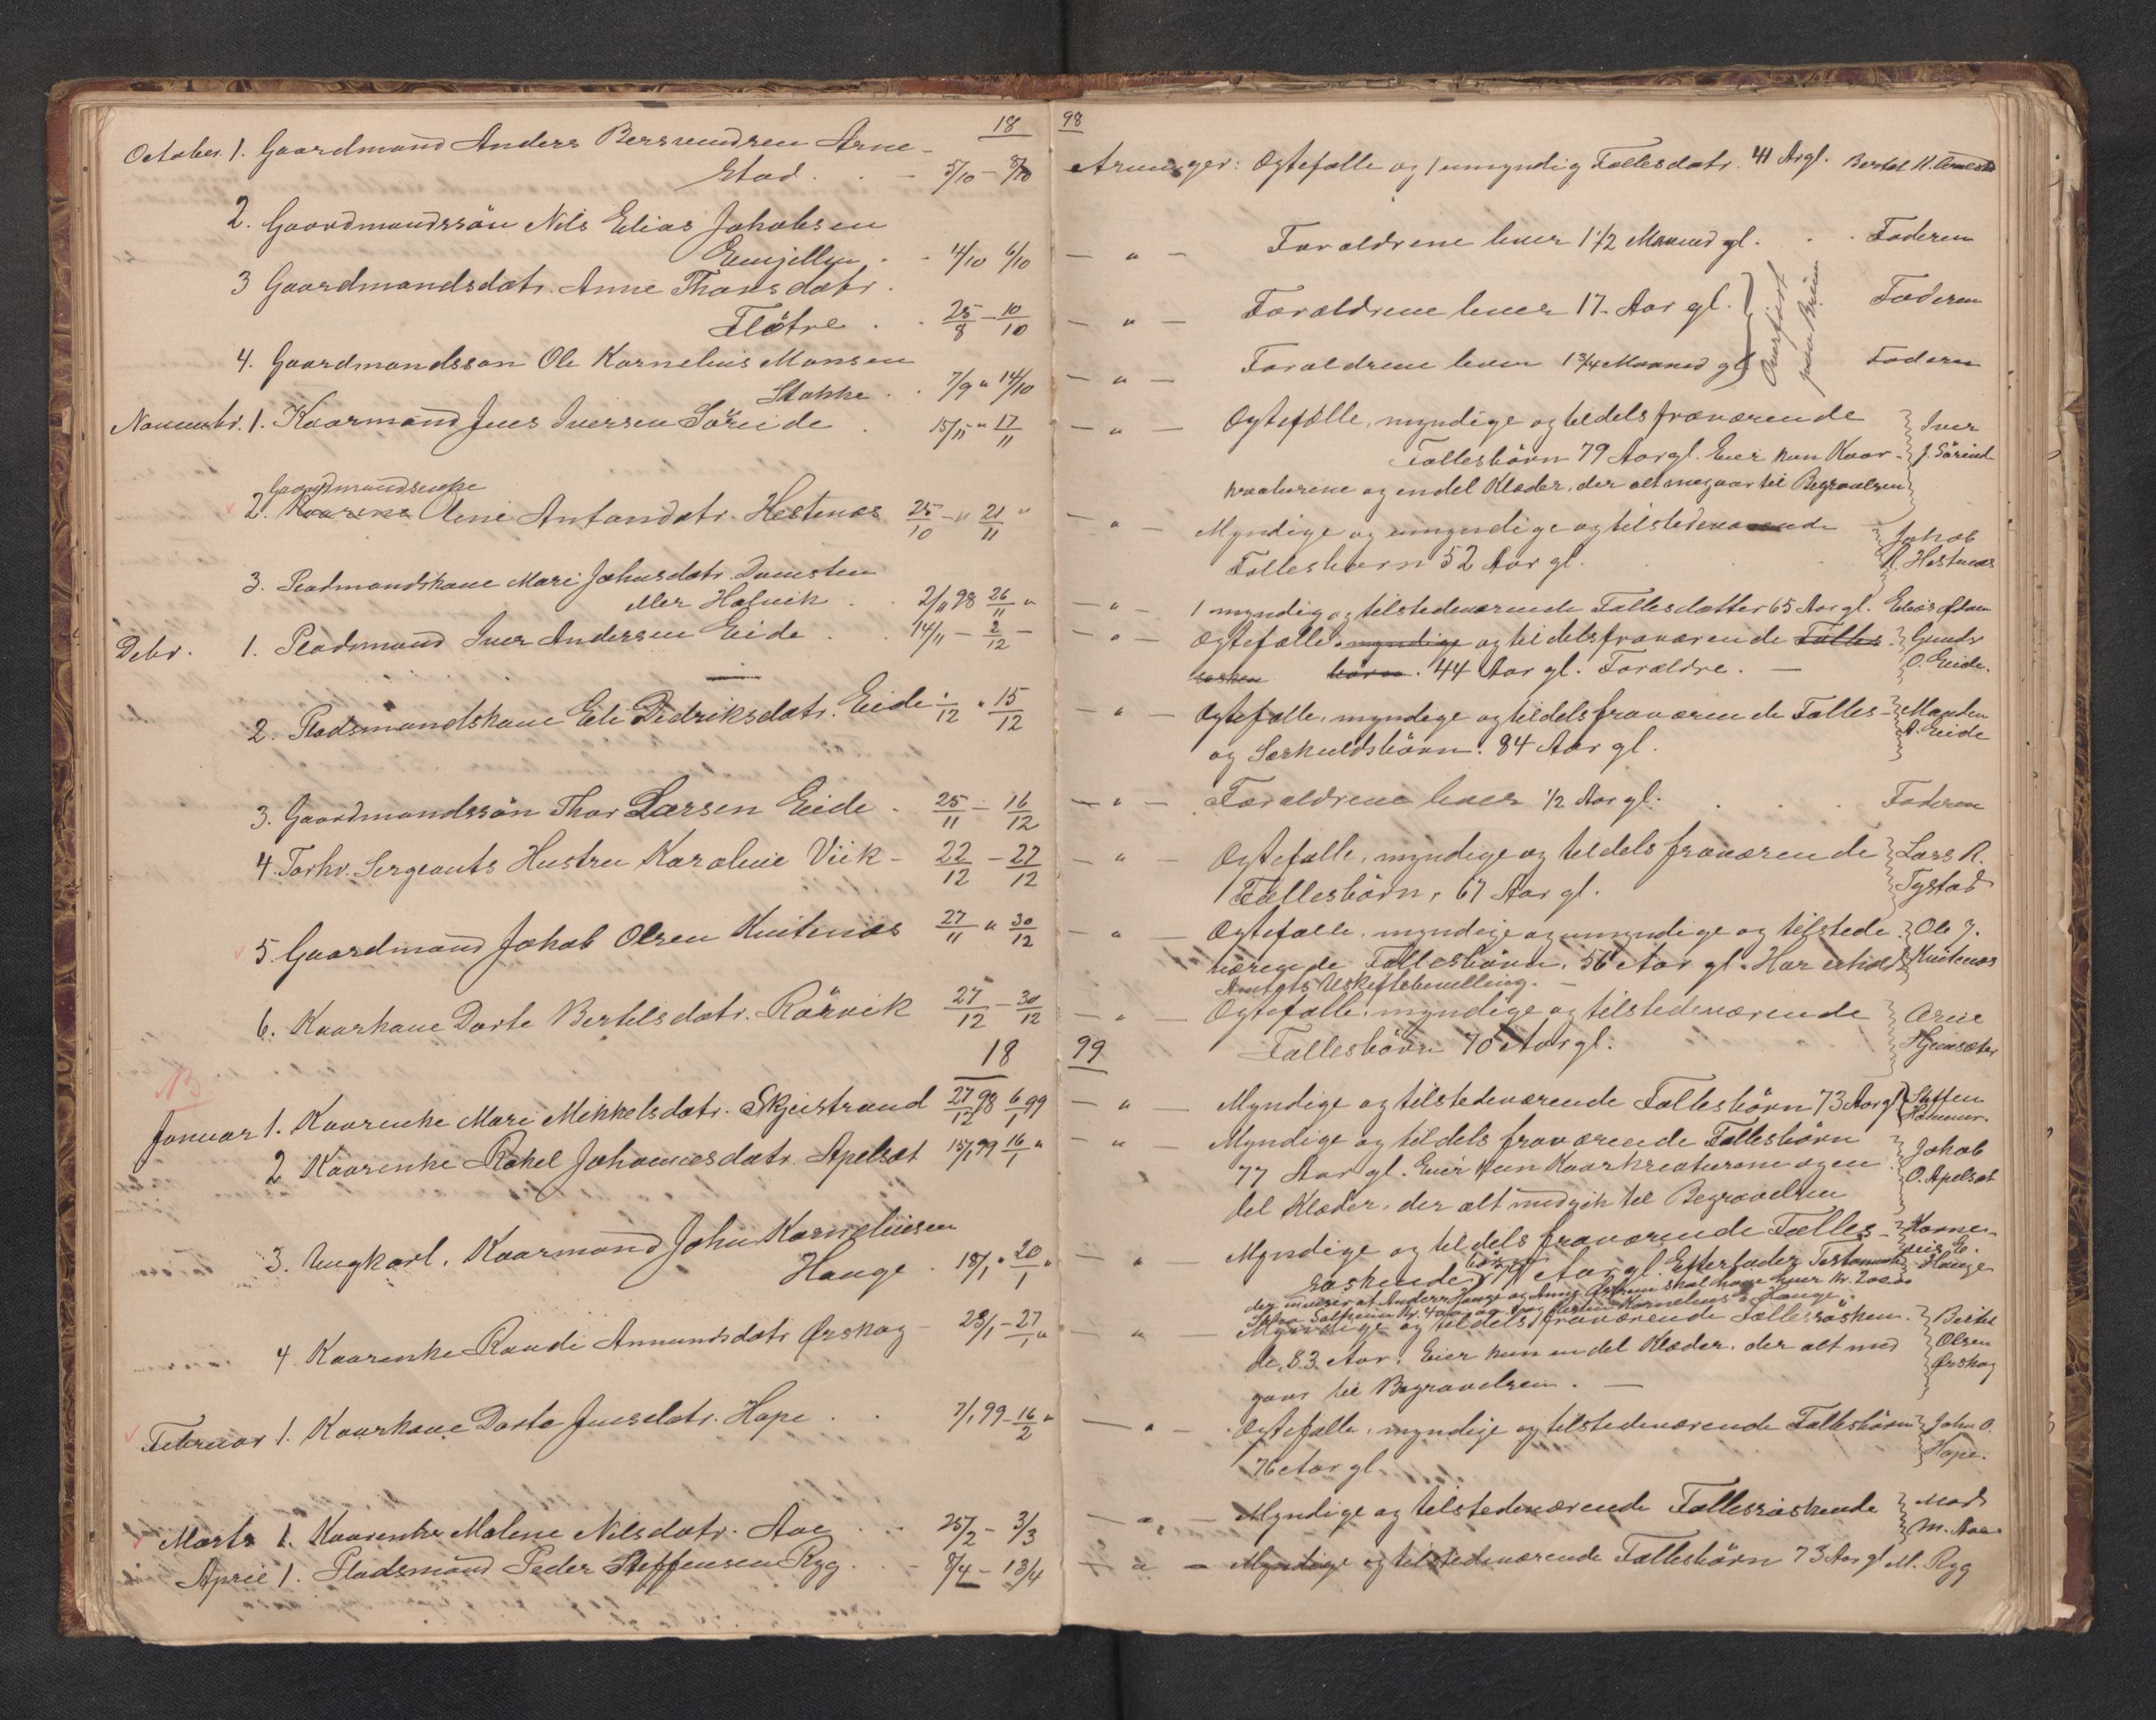 18 98
October. 1. Gaardmand Anders Bersvendsen Arne-
stad. 5/10 - 5/10 Arvinger: Ægtefælle og 1 umyndig Fællesdatr. 41 Aar gl. Bertel
2. Gaardmandssön Nils Elias Jakobsen
4/10 6/10 — " — Forældrene lever 1 1/2 Maaned gl. Faderen
3 Gaardmandsdatr. Anne Thomsdatr.
Flötre 25/8 - 10/10 — " — Forældrene lever 17. Aar gl. Faderen
4. Gaardmandssøn Ole Kornelius Monsen
Stokke 7/9 " 14/10 — " — Forældrene lever 1 3/4 Maaned gl. Faderen
Overført
paa Brim
Novembr. 1. Kaarmand Jens Iversen Söreide 15/11 " 17/11 — " — Ægtefælle, myndige og tildels fraværende Iver
Fællesbörn 79 Aar gl. Eier kun Kaar- J. Söreid
kreaturene og endel Klæder, der alt medgaar til Begravelsen
Gaardmandsenke
2. Kaarenke Oline Antondatr. Hestenæs 25/10 - " 21/11 " — " — Myndige og umyndige og tilstedeværende Jakob
Fællesbørn 52 Aar gl. R. Hestenæs
3. Pladsmandskone Mari Johnsdatr. Tuneslen
eller Holvik 2/11 98 26/11 " — " — 1 myndig og tilstedeværende Fællesdatter 65 Aar gl. Elias
Debr. 1. Pladsmand Iver Andersen Eide 14/11 - 2/12 — — " — Ægtefælle, myndige og tildels fraværende Fælles Gunds
søsken börn. 44 Aar gl. Forældre. O. Eide.
2. Pladsmandskone Eli Didriksdatr. Eide 1/12 " 15/12 — " — Ægtefælle, myndige og tildels fraværende Fælles- Manden
og Særkuldsbörn. 84 Aar gl. A. Eide
3. Gaardmandssön Thor Larsen Eide 25/11 - 16/12 — " — Forældrene lever 1/2 Aar gl. Faderen
4. Forhv. Sergeants Hustru Karoline Viik - 22/12 - 27/12 — " — Ægtefælle, myndige og tildels fraværende Lars R.
Fællesbörn, 67 Aar gl. Tystad
5. Gaardmand Jakob Olsen Kvitenæs 27/11 " 30/12 — " — Ægtefælle, myndige og umyndige og tilstede Ole J.
værende Fællesbörn, 56 Aar gl. Har erhold Kvitenæs
Amtets Uskiftebevilling.
6. Kaarkone Dorte Bertelsdatr. Rörvik 27/12 - 30/12 — " — Ægtefælle, myndige og tilstedeværende Arne
Fællesbörn 70 Aar gl. Hjemsæter
18 99
NB
Januar 1. Kaarenke Mari Mikkelsdatr. Skjeistrand 27/12 98 6/1 99 — " — Myndige og tilstedeværende Fællesbörn 73 Aar gl Steffen
Hammer.
2 Kaarenke Rakel Johannesdatr. Apelset 15/1 99 16/1 " — " — Myndige og tildels fraværende Fællesbörn Jakob
77 Aar gl. Eier kun Kaarkreaturene og en O. Apelset
del Klæder, der alt medgik til Begravelsen
3. Ungkarl, Kaarmand John Korneliusen
Hauge 18/1 " 20/1 " — " — Myndige og tildels fraværende Fælles- Korne-
søskende Aar gl. Efterlader Testament lius
der at Anders Hauge og Anne skal have hver Kr. 200.00 Hauge
Kornelius Hauge.
4. Kaarenke Randi Amundsdatr Ørskog - 23/1 - 27/1 " — " — Myndige og tildels fraværende Fællessösken- Bertel
de, 83 Aar. Eier kun en del Klæder, der alt med Olsen
gaar til Begravelsen. — Ørskog
Februar 1. Kaarkone Dorte Jensdatr. Hope 7/1 99 - 16/2 " — " — Ægtefælle, myndige og tilstedeværende Fællesbörn John O.
76 Aar gl. Hope.
Marts 1. Kaarenke Malene Nilsdatr. Aae 25/2 - 3/3 — " — Myndige og tilstedeværende Fællessöskende Mads
M. Aae
April 1. Pladsmand Peder Steffensen Ryg 8/4 - 13/4 — " — Myndige og tilstedeværende Fællesbörn 73 Aar gl M. Ryg